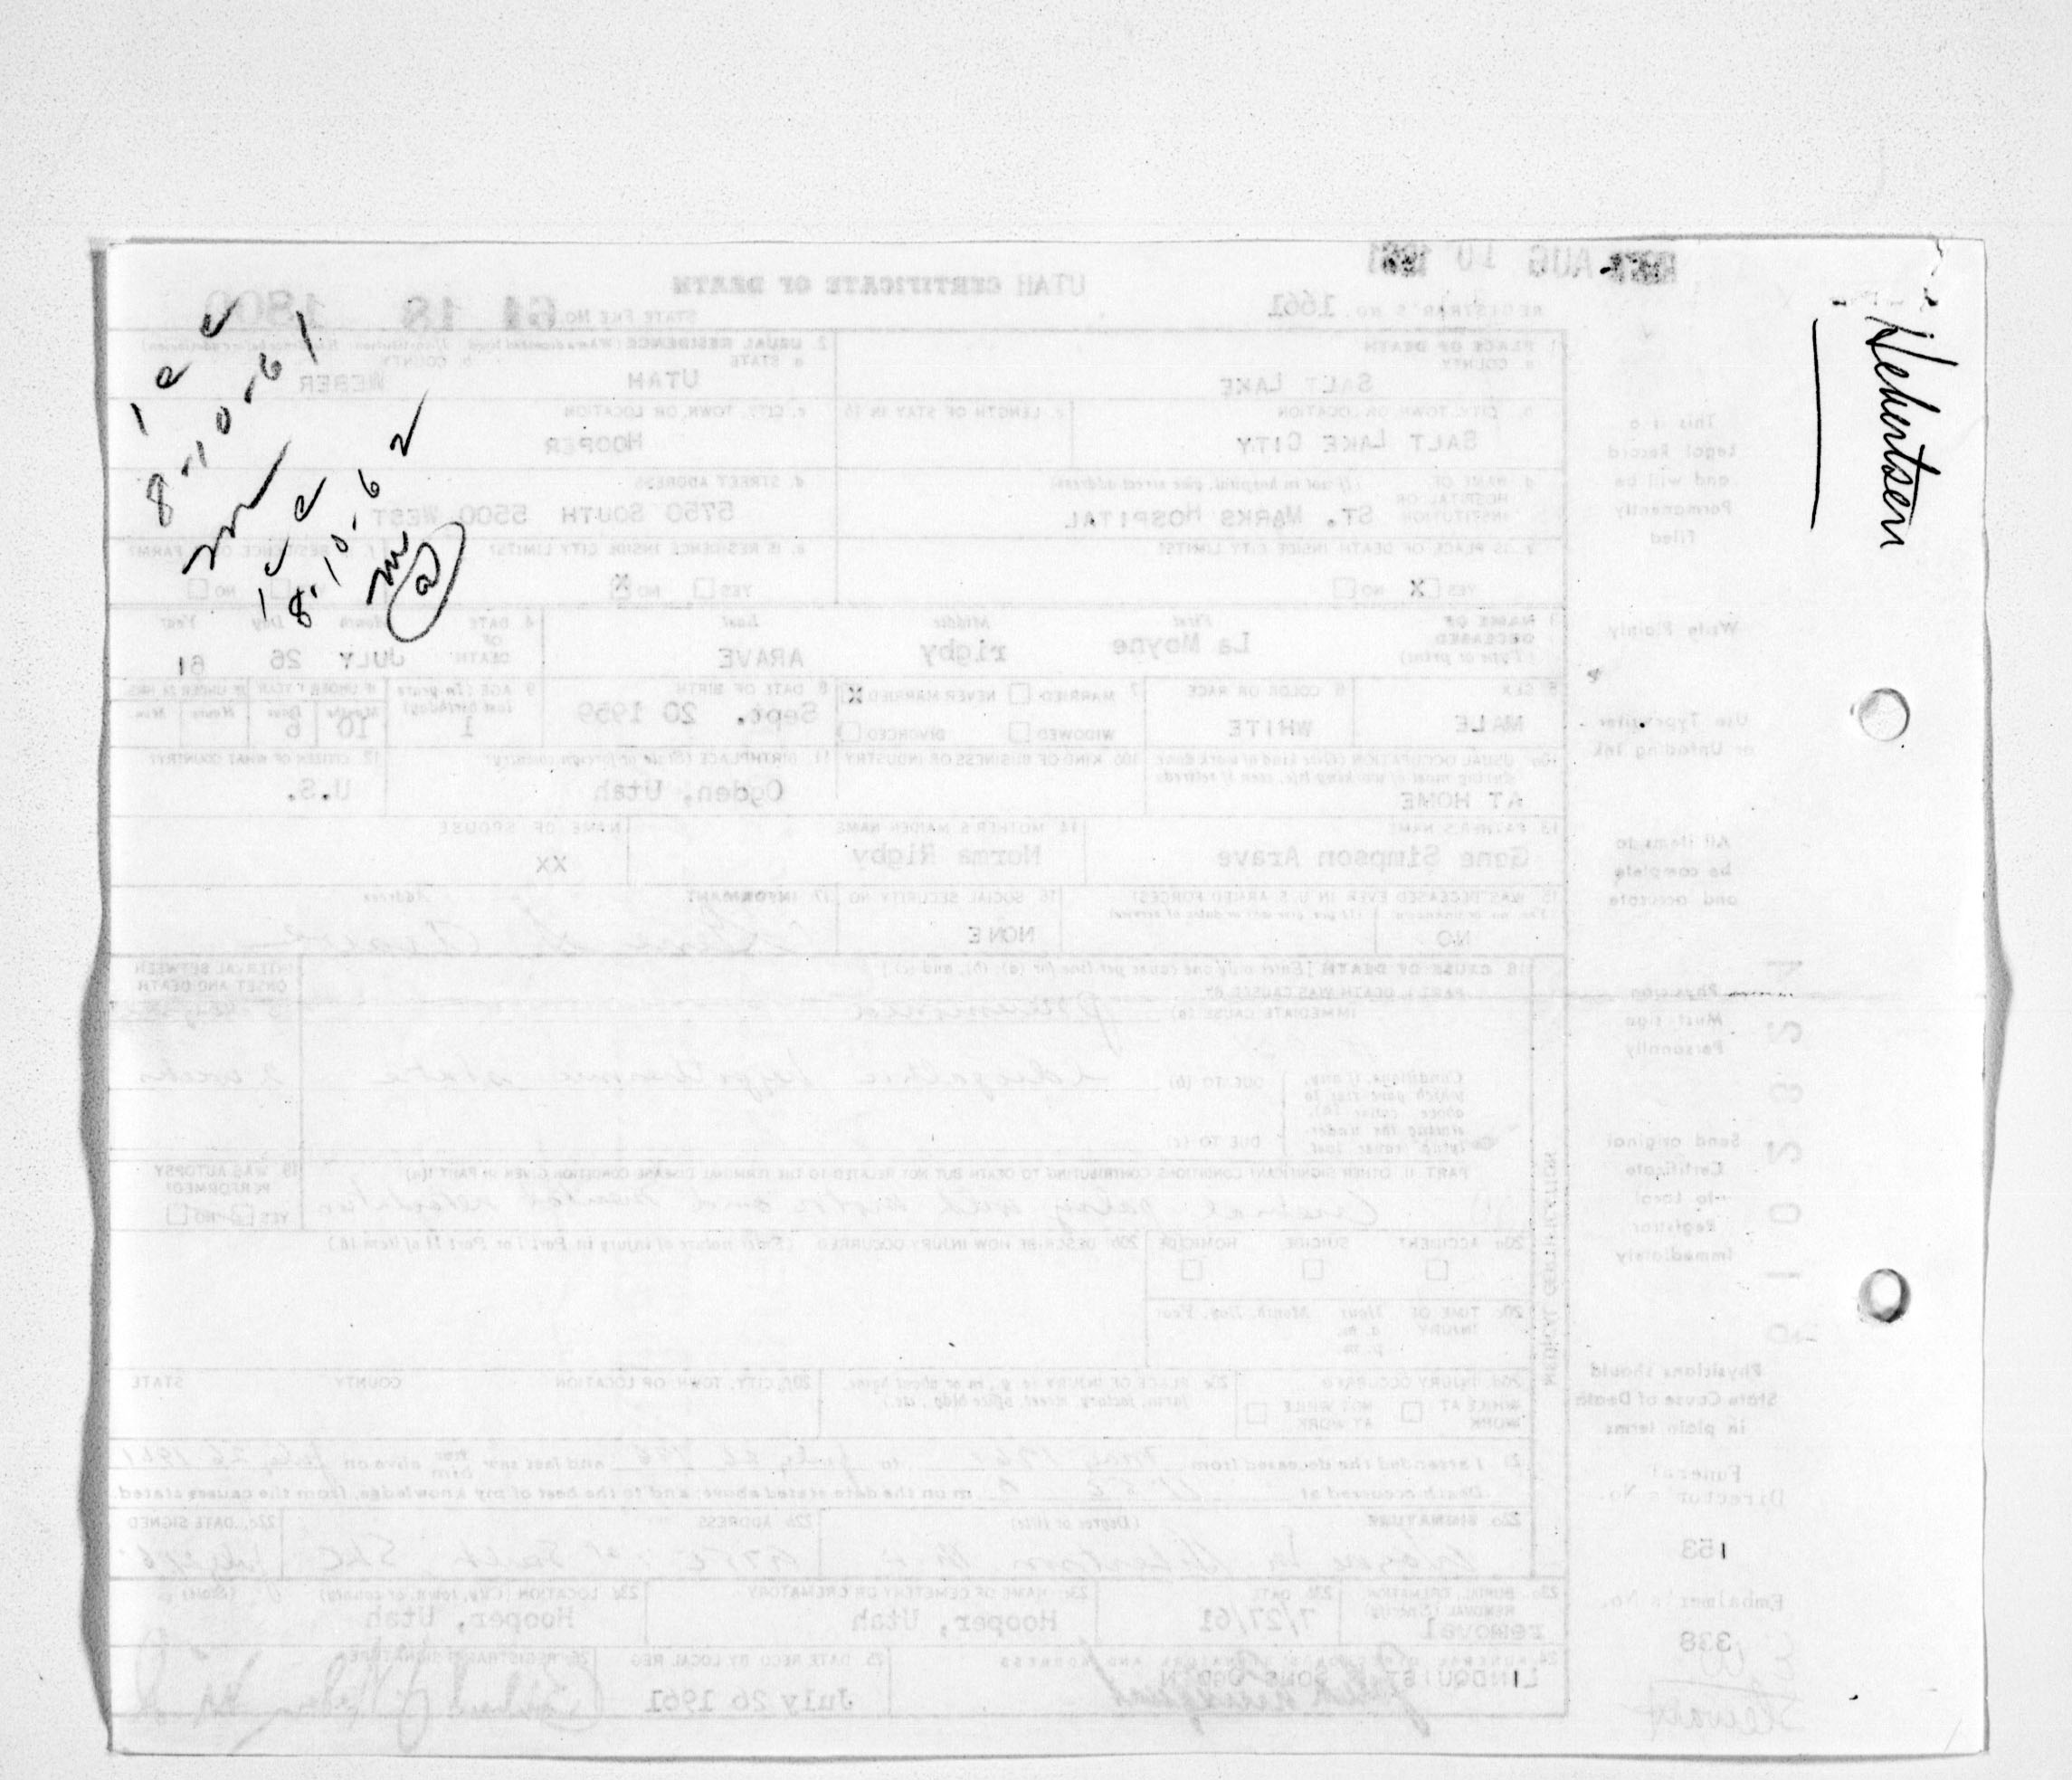 Hebertsen
1 c c
8-10-61
m
1 c c
8-10-62
m
a
REC'D AUG 10 1961
UTAH CERTIFICATE OF DEATH
REGISTRAR'S NO. 1661
STATE FILE NO. 61 18 1800
1. PLACE OF DEATH
a. COUNTY
SALT LAKE
2. USUAL RESIDENCE
a. STATE
UTAH
b. COUNTY
WEBER
b. CITY, TOWN, OR LOCATION
SALT LAKE CITY
c. LENGTH OF STAY IN 1b
c. CITY, TOWN, OR LOCATION
HOOPER
d. NAME OF HOSPITAL OR INSTITUTION (If not in hospital, give street address)
ST. MARKS HOSPITAL
d. STREET ADDRESS
5750 SOUTH 5500 WEST
e. IS PLACE OF DEATH INSIDE CITY LIMITS?
YES X NO
e. IS RESIDENCE INSIDE CITY LIMITS?
YES NO X
f. IS RESIDENCE ON A FARM?
YES NO
3. NAME OF DECEASED (Type or print)
First Middle Last
La Moyne rigby ARAVE
4. DATE OF DEATH Month Day Year
JULY 26 61
5. SEX
MALE
6. COLOR OR RACE
WHITE
7. MARRIED NEVER MARRIED X
WIDOWED DIVORCED
8. DATE OF BIRTH
Sept. 20 1959
9. AGE (In years last birthday)
1
IF UNDER 1 YEAR IF UNDER 24 HRS.
Months Days Hours Min.
10 6
10a. USUAL OCCUPATION (Give kind of work done during most of working life, even if retired)
AT HOME
10b. KIND OF BUSINESS OR INDUSTRY
11. BIRTHPLACE (State or foreign country)
Ogden, Utah
12. CITIZEN OF WHAT COUNTRY?
U.S.
13. FATHER'S NAME
Gene Simpson Arave
14. MOTHER'S MAIDEN NAME
Norma Rigby
NAME OF SPOUSE
XX
15. WAS DECEASED EVER IN U.S. ARMED FORCES?
NO
16. SOCIAL SECURITY NO.
NONE
17. INFORMANT Address
Gene S. Arave
18. CAUSE OF DEATH [Enter only one cause per line for (a), (b), and (c).]
PART I. DEATH WAS CAUSED BY:
IMMEDIATE CAUSE (a) pneumonia
INTERVAL BETWEEN ONSET AND DEATH
Conditions, if any, which gave rise to above cause (a), stating the underlying cause last
DUE TO (b) Idiopathic hyperthermic state 2 weeks
DUE TO (c)
PART II. OTHER SIGNIFICANT CONDITIONS CONTRIBUTING TO DEATH BUT NOT RELATED TO THE TERMINAL DISEASE CONDITION GIVEN IN PART I(a)
Cerebral palsy with motor and mental retardation
19. WAS AUTOPSY PERFORMED?
YES NO
20a. ACCIDENT SUICIDE HOMICIDE
20b. DESCRIBE HOW INJURY OCCURRED (Enter nature of injury in Part I or Part II of item 18.)
20c. TIME OF INJURY Hour Month, Day, Year
a. m.
p. m.
20d. INJURY OCCURRED
WHILE AT WORK NOT WHILE AT WORK
20e. PLACE OF INJURY (e. g., in or about home, farm, factory, street, office bldg., etc.)
20f. CITY, TOWN, OR LOCATION COUNTY STATE
21. I attended the deceased from May 1961 to July 26 and last saw him alive on July 26 1961
Death occurred at m on the date stated above; and to the best of my knowledge, from the causes stated.
22a. SIGNATURE (Degree or title)
22b. ADDRESS
22c. DATE SIGNED
23a. BURIAL, CREMATION, REMOVAL (Specify)
removal
23b. DATE
7/27/61
23c. NAME OF CEMETERY OR CREMATORY
Hooper, Utah
23d. LOCATION (City, town, or county) (State)
Hooper, Utah
24. FUNERAL DIRECTOR'S SIGNATURE AND ADDRESS
LINDQUIST SONS OGDEN
25. DATE REC'D BY LOCAL REG.
July 26 1961
26. REGISTRAR'S SIGNATURE
MEDICAL CERTIFICATION
This is a
Legal Record
and will be
Permanently
Filed
Write Plainly
Use Typewriter
or Unfading Ink
All items to
be complete
and accurate
Physician
Must sign
Personally
Send original
Certificate
to Local
Registrar
Immediately
Physicians should
State Cause of Death
in plain terms
Funeral
Director's No.
153
Embalmer's No.
338
Stewart